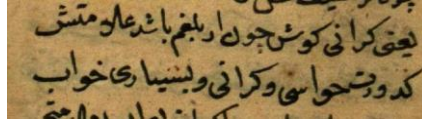 یعنی کرانی کوش چون از بلغم باشد علامتش
کدورت حواس و کرانی و بسیاری خواب